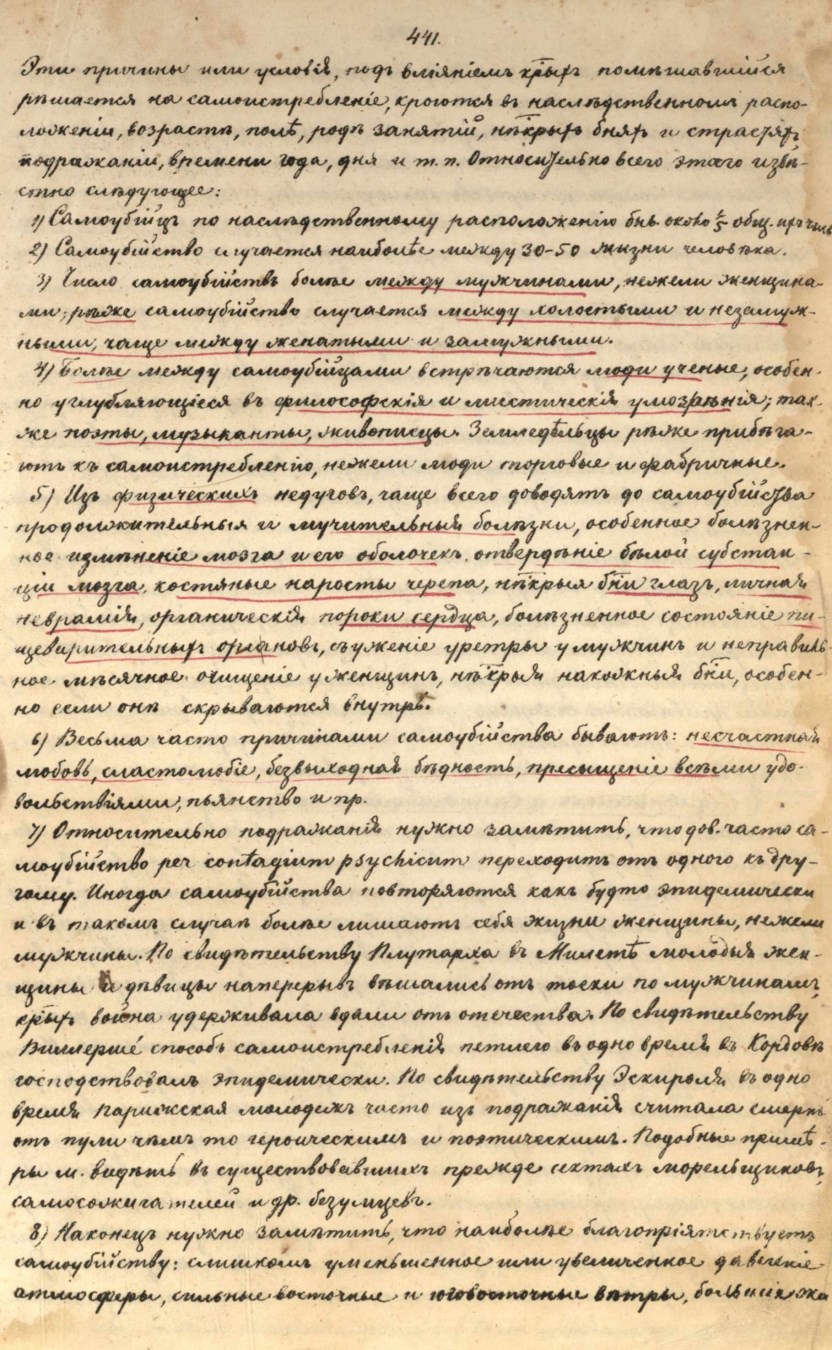 441.
Эти причины или условія, подъ вліяніемъ кр̅ыхъ помѣшавшійся
рѣшается на самоистребленіе, кроются въ наслѣдственномъ распо-
ложеніи, возрастѣ, полѣ, родѣ занятій, нѣ̅крыхъ бняхъ и страстяхъ,
подражаніи, времени года, дня и т. п. Относительно всего этаго извѣ-
стно слѣдующее:
1) Самоубійцъ по наслѣдственному расположенію бнь около 1/5 общ. ихъ числ
2) Самоубійство случается наиболѣе между 30-50 жизни человѣка.
3) Число самоубійствъ болѣе между мужчинами, нежели женщина-
ми; рѣже самоубійство случается между холостыми и незамуж-
ными, чаще между женатыми и замужными.
4) Болѣе между самоубійцами встрѣчаются люди ученые, особен-
но углубляющіеся въ философскія и мистическія умозрѣнія; так-
же поэты, музыканты, живописцы. Земледѣльцы рѣже прибѣга-
ютъ къ самоистребленію, нежели люди торговые и фабричные.
5) Изъ физическихъ недуговъ, чаще всего доводятъ до самоубійства
продолжительныя и мучительныя болѣзни, особенное болѣзнен-
ное измѣненіе мозга и его оболочекъ, отвердѣніе бѣлой субстан-
ціи мозга, костяные наросты черепа, нѣ̅крыя бн̅и глазъ, личная
невралгія, органическія пороки сердца, болѣзненное состояніе пи-
щеварительныхъ органовъ, съуженіе уретры у мужчинъ и неправиль-
ное мѣсячное очищеніе у женщинъ, нѣ̅крыя накожныя бн̅и, особен-
но если онѣ скрываются внутрь.
6) Весьма часто причинами самоубійства бываютъ: несчастная
любовь, сластолюбіе, безвыходная бѣдность, пресыщеніе всѣми удо-
вольствіями, пьянство и пр.
7) Относительно подражанія нужно замѣтить, что дов. часто са-
моубійство per contagium psychicum переходитъ отъ одного къ дру-
гому. Иногда самоубійства повторяются какъ будто эпидемически
и въ такомъ случаѣ болѣе лишаютъ себя жизни женщины, нежели
мужчины. По свидѣтельству Плутарха въ Милетѣ молодыя жен-
щины и дѣвицы наперерывъ вѣшались отъ тоски по мужчинамъ,
кр̅ыхъ война удерживала вдали отъ отечества. По свидѣтельству
способъ самоистребленія петлею въ одно время въ Кордовѣ
господствовалъ эпидемически. По свидѣтельству Эскироля въ одно
время Парижская молодежъ часто изъ подражанія считала смерть
отъ пули чѣмъ то героическимъ и поэтическимъ. Подобные примѣ-
ры м. видѣть въ существовавшихъ прежде сектахъ морельщиковъ,
самосожигателей и др. безумцевъ.
8) Наконецъ нужно замѣтить, что наиболѣе благопріятствуетъ
самоубійству: слишкомъ уменьшенное или увеличенное давленіе
атмосферы, сильные восточные и юговосточные вѣтры,